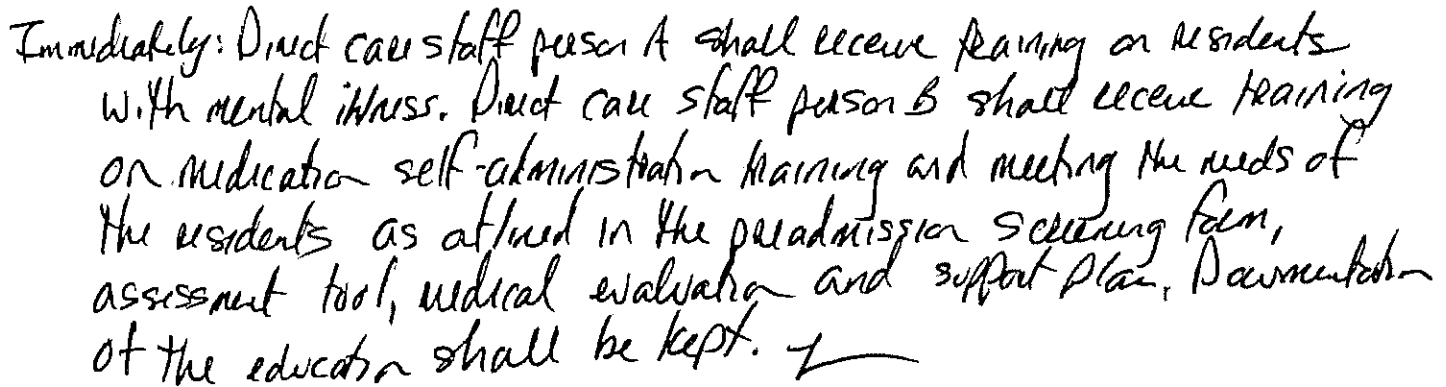 Immediately: Direct care staff person A shall receive training on residents
with mental illness. Direct care staff person B shall receive training
on medication self-administration training and meeting the needs of
the residents as outlined in the preadmission screening form,
assessment tool, medical evaluation and support plan. Documentation
of the education shall be kept.